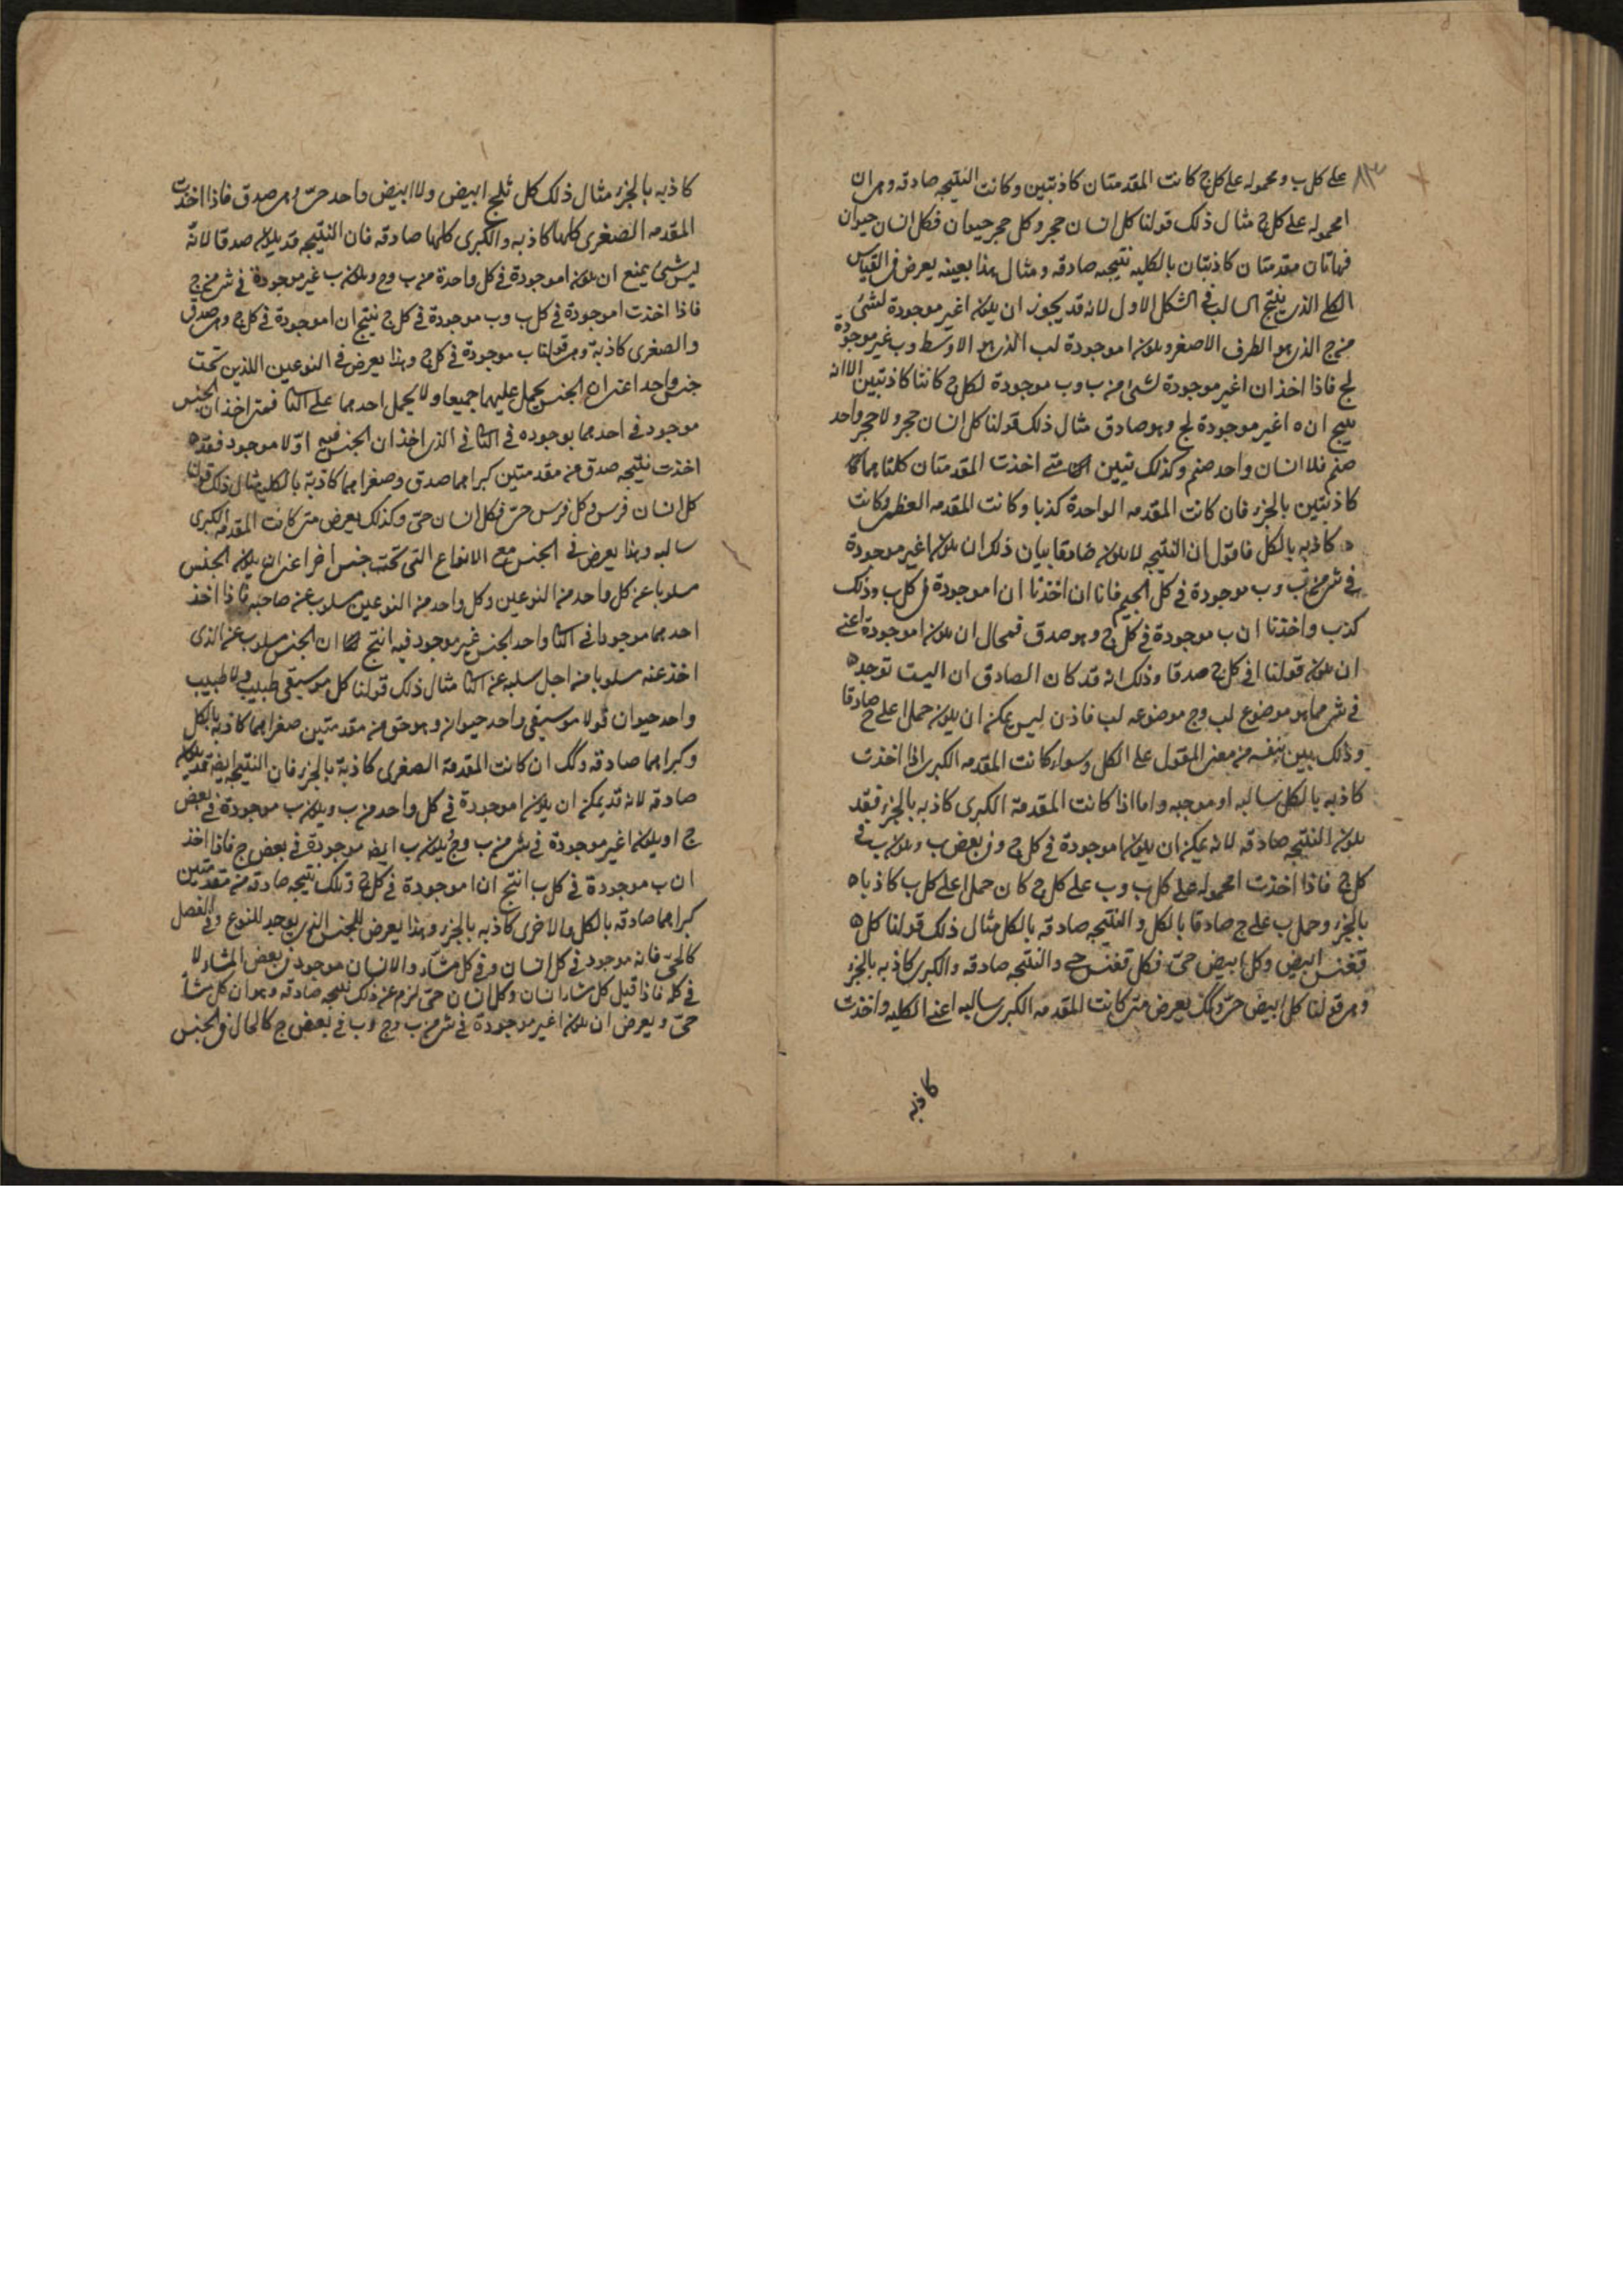 على كل ب ومحموله على كل ج كانت المقدمتان كاذبتين وكانت النتيجه صادقه وهي ان
ا محموله على كل ج مثال ذلك قولنا كل انسان حجر وكل حجر حيوان فكل انسان حيوان
فهاتان مقدمتان كاذبتان بالكليه نتيجته صادقه ومثال هذا بعينه يعرض في القياس
الكلي الذي ينتج السالب في الشكل الاول لانه قد يجوز ان يكون ا غير موجودة لشئ
من ج الذي هو الطرف الاصغر ويكون ا موجودة لب الذي هو الاوسط وب غير موجودة
لج فاذا اخذ ان ا غير موجودة لشئ من ب وب موجودة لكل ج كانتا كاذبتين الا انه
ينتج ان ا غير موجودة لج وهو صادق مثال ذلك قولنا كل انسان حجر ولا حجر واحد
فلا انسان واحد وكذلك تبين متى اخذت المقدمتان كلتاهما
كاذبتين بالجزء فان كانت المقدمه الواحدة كذبا وكانت المقدمه العظمى وكانت
كاذبه بالكل فاقول ان النتيجه لا يكون صادقا بيان ذلك ان يكون ا غير موجودة
في شئ من ب وب موجودة في كل الجيم فانا ان اخذنا ان ا موجودة في كل ب وذلك
كذب واخذنا ان ب موجودة في كل ج وهو صدق فمحال ان يكون ا موجودة اعني
ان يكون قولنا ا في كل ج صدقا وذلك انه قد كان الصادق ان ا ليست توجد
في شئ مما هو موضوع لب وج موضوعه لب فاذن ليس يمكن ان يكون حمل ا على ج صادقا
وذلك بين بنفسه من معنى المقول على الكل وسواء كانت المقدمه الكبرى اذا اخذت
كاذبه بالكل سالبه او موجبه واما اذا كانت المقدمة الكبرى كاذبه بالجزء فقد
يكون النتيجه صادقه لانه يمكن ان يكون ا موجودة في كل ج وفي بعض ب ويكون ب في
كل ج فاذا اخذت ا محموله على كل ب وب على كل ج كان حمل ا على كل ب كاذبا
بالجزء وحمل ب على ج صادقا بالكل والنتيجه صادقه بالكل مثال ذلك قولنا كل
ققنس ابيض وكل ابيض حي فكل ققنس حي والنتيجه صادقه والكبرى كاذبه بالجزء
وهي قولنا كل ابيض حي وكك يعرض متى كانت المقدمه الكبرى سالبه اعني الكليه واخذت
كاذبه
كاذبه بالجزء مثال ذلك كل ثلج ابيض ولا ابيض واحد حي وهي صدق فاذا اخذت
المقدمه الصغرى كلها كاذبه والكبرى كلها صادقه فان النتيجه قد يكون صدقا لانه
ليس شئ يمنع ان يكون ا موجودة في كل واحدة من ب وج ويكون ب غير موجودة في شئ من ج
فاذا اخذت ا موجودة في كل ب وب موجودة في كل ج نتج ان ا موجودة في كل ج وهي صدق
والصغرى كاذبة وهي قولنا ب موجودة في كل ج وهذا يعرض في النوعين اللذين تحت
جنس واحد اعني ان الجنس يحمل عليهما جميعا ولا يحمل احدهما على الثاني فمتى اخذ ان الجنس
موجود في احدهما بوجوده في الثاني الذي اخذ ان الجنس فيه اولا موجود فقد
اخذت نتيجه صدق من مقدمتين كبراهما صدق وصغراهما كاذبة بالكليه مثال ذلك قولنا
كل انسان فرس وكل فرس حي فكل انسان حي وكذلك يعرض متى كانت المقدمه الكبرى
سالبه وهذا يعرض في الجنس مع الانواع التي تحت جنس اخر اعني ان يكون الجنس
مسلوبا عن كل واحد من النوعين وكل واحد من النوعين مسلوب عن صاحبه فاذا اخذ
احدهما موجودا في الثاني واحد الجنس غير موجود فيه انتج ان الجنس مسلوب عن الذي
اخذ عنه مسلوبا من اجل سلبه عن الثاني مثال ذلك قولنا كل موسيقى طبيب ولا طبيب
واحد حيوان فولا موسيقى واحد حيوان وهو حق من مقدمتين صغراهما كاذبه بالكل
وكبراهما صادقه وكك ان كانت المقدمة الصغرى كاذبة بالجزء فان النتيجه ايضا قد يكون
صادقه لانه قد يمكن ان يكون ا موجودة في كل واحد من ب ويكون ب موجودة في بعض
ج او يكون ا غير موجودة في شئ من ب وج ويكون ب ايضا موجودة في بعض ج فاذا اخذ
ان ب موجودة في كل ب انتج ان ا موجودة في كل ج وتلك نتيجه صادقه من مقدمتين
كبراهما صادقه بالكل والاخرى كاذبه بالجزء وهذا يعرض للجنس الذي يوجد للنوع وفي الفصل
كالحي فانه موجود في كل انسان وفي كل مشاء والانسان موجود في بعض المشاء لا
في كله فاذا قيل كل مشاء انسان وكل انسان حي لزم عن ذلك نتيجه صادقه وهو ان كل مشاء
حي ويعرض ان يكون ا غير موجودة في شئ من ب وج وب في بعض ج كالحال في الجنس